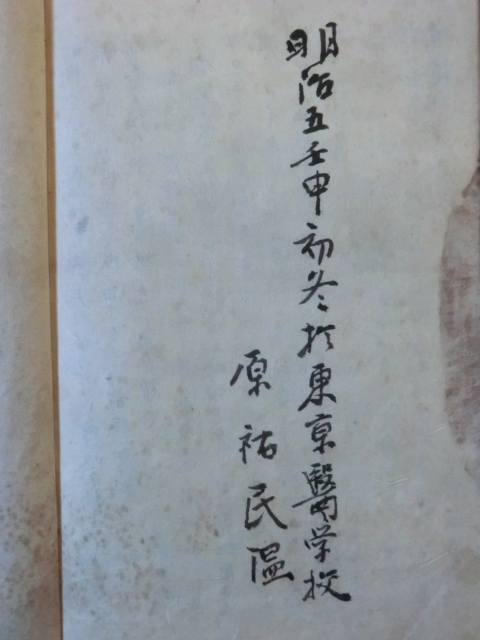 明治五壬申初冬於東京醫学校
原祐民